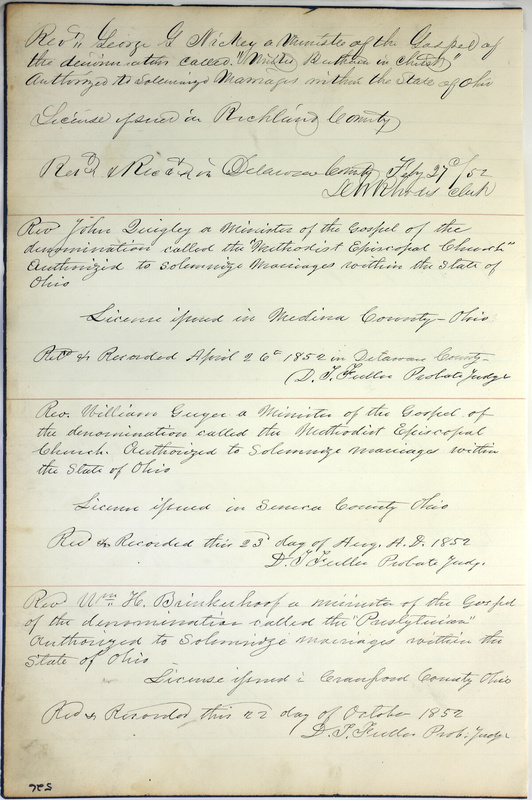 Revd George G Nickey a Minister of the Gospel of
the denomination called "United Brethren in Christ"
Authorized to Solemnize Marriages within the State of Ohio
License issued in Richland County
Recd & Recd in Delaware County Feby 27th/52
Rhodes Clerk
Rev John Quigley a Minister of the Gospel of the
denomination called the "Methodist Episcopal Church"
Authorized to Solemnize Marriages within the State of
Ohio
License issued in Medina County - Ohio
Recd & Recorded April 26th 1852 in Delaware County -
D. T. Fuller Probate Judge
Rev. William Guyer a Minister of the Gospel of
the denomination called the Methodist Episcopal
Church. Authorized to Solemnize marriages within
the State of Ohio
License issued in Seneca County Ohio
Recd & Recorded this 23d day of Aug. A.D. 1852
D. T. Fuller Probate Judge.
Rev Wm. H. Brinkerhoof a minister of the Gospel
of the denomination called the "Presbyterian"
Authorized to Solemnize marriages within the
State of Ohio
License issued in Crawford County Ohio
Recd & Recorded this 22 day of October 1852
D. T. Fuller Prob. Judge